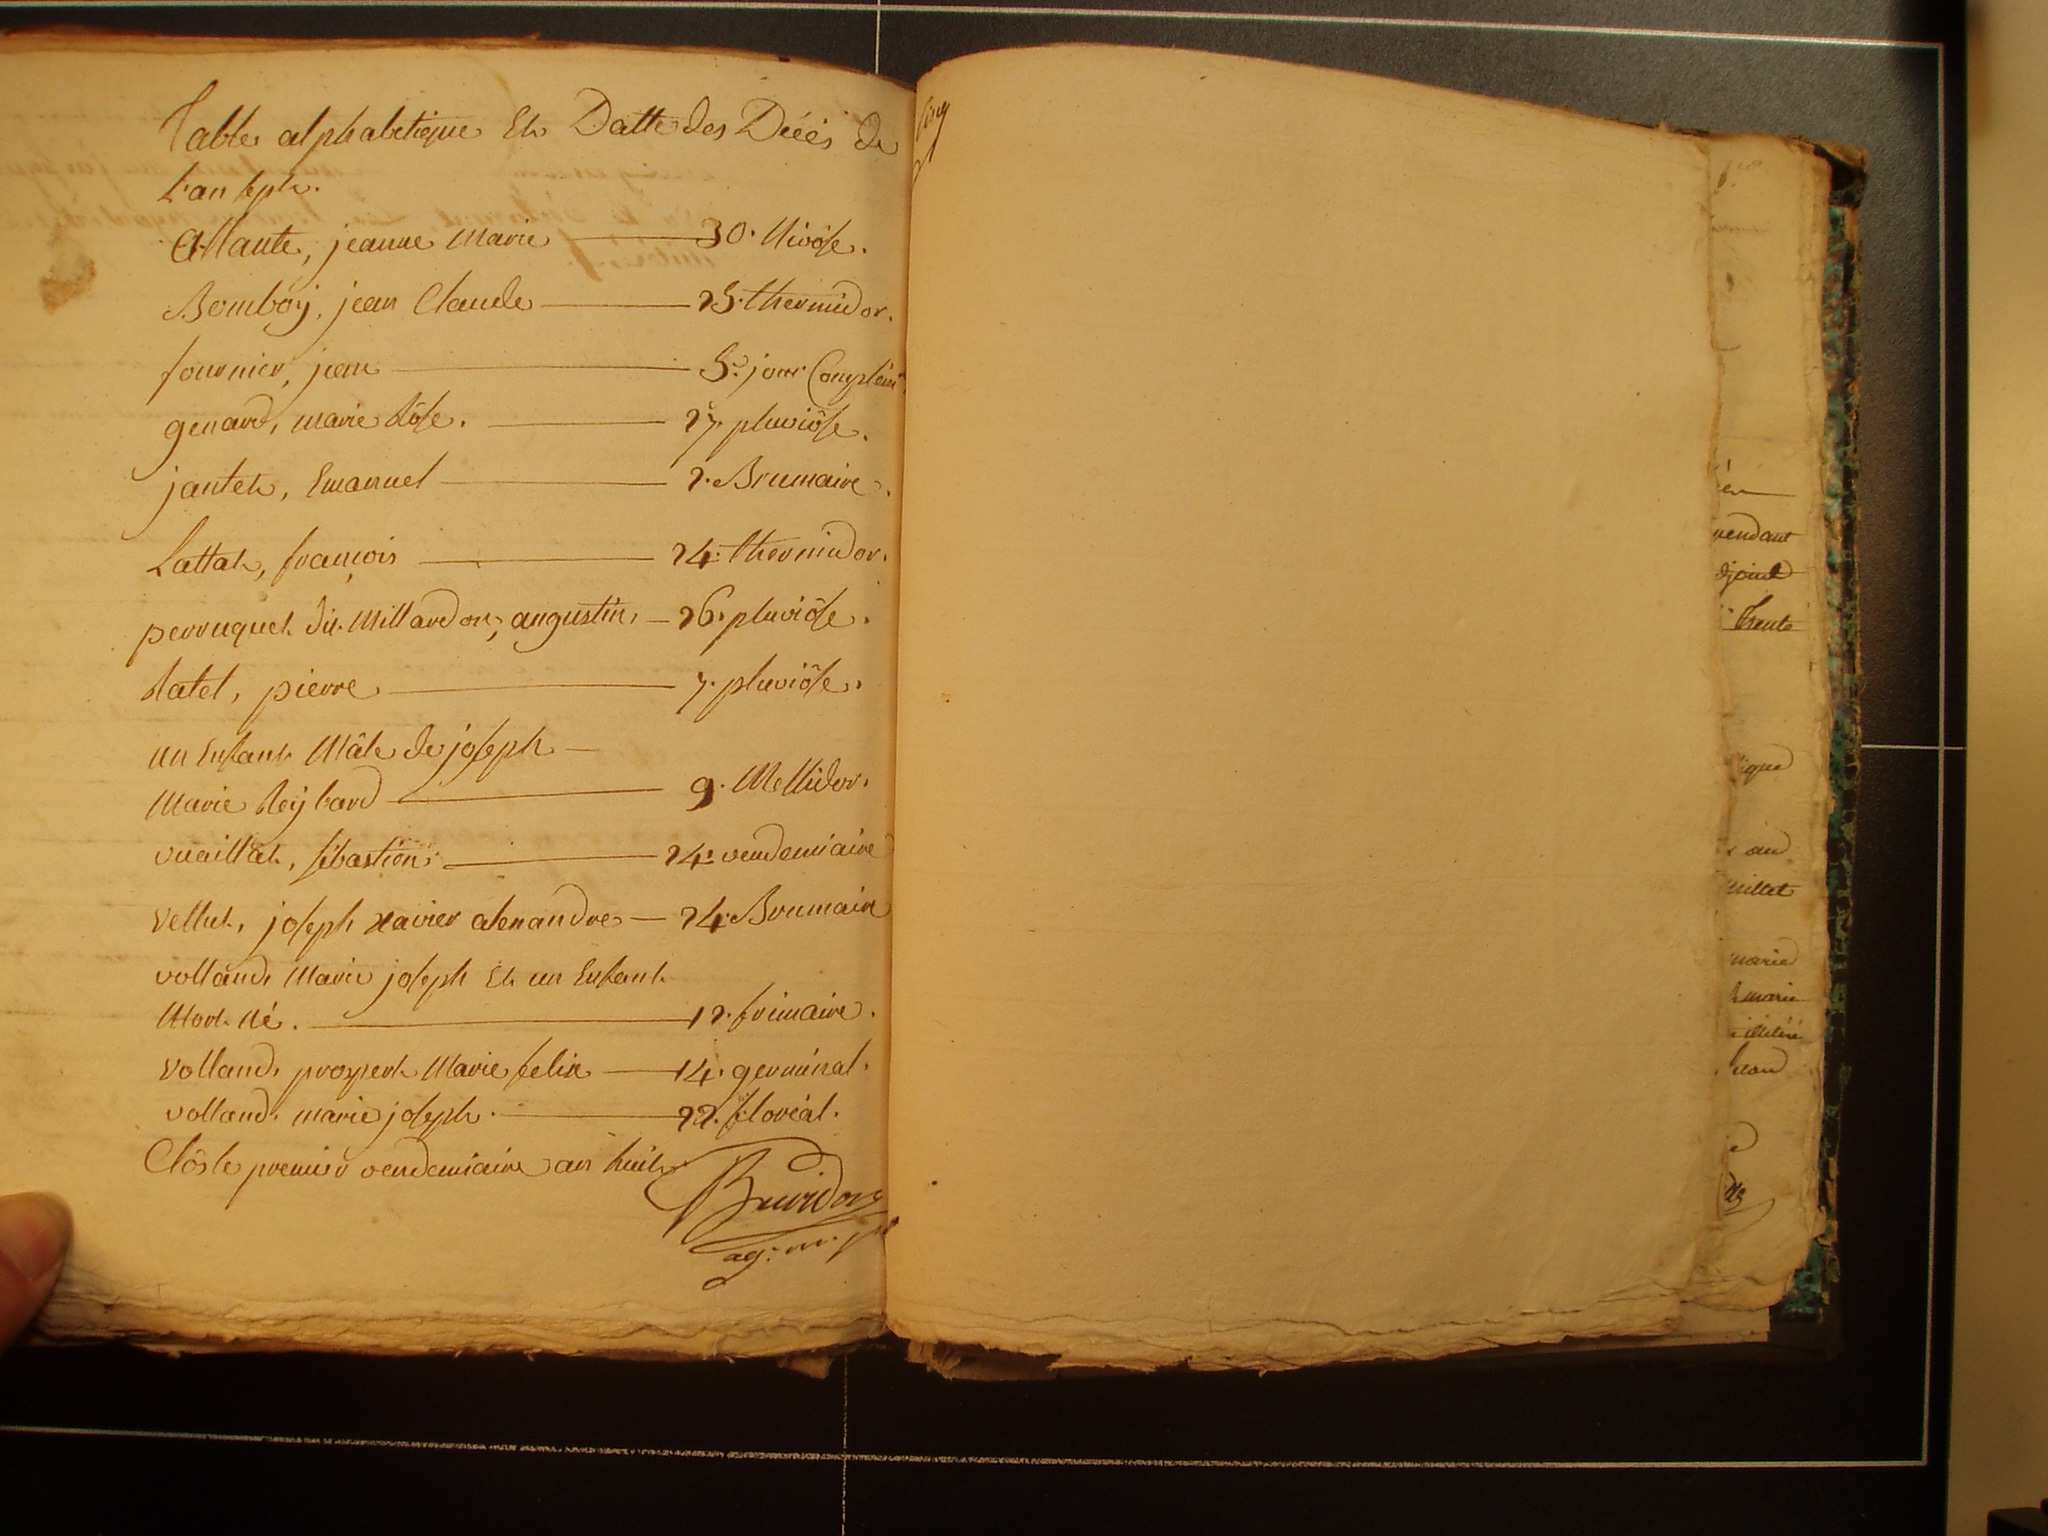 Table alphabetique Et Datte des Décès de
L'an sept.
Allante, jeanne Marie — 30. Nivôse.
Bomboy, jean Claude — 25. thermidor.
fournier, jean — 5e. jour Complém
genard, marie Rôse. — 27 pluviôse.
jantet, Emanuel — 2. Brumaire.
Lattat, françois — 24. thermidor.
perruquet dit Millardon, augustin, — 26. pluviôse.
Ratel, pierre — 7. pluviôse.
un Enfant Mâle de joseph —
Marie Reybard — 9. Messidor.
vuaillat, sébastien — 24. vendemiaire
vellut, joseph xavier alexandre — 24. Brumaire
volland, Marie joseph Et un Enfant
Mort Né. — 12. frimaire.
volland, prospert Marie felix — 14. germinal.
volland, marie joseph. — 22. floréal.
Clôs le premier vendemiaire an huit
ag. m.
rendant
djoint
Trente
ique
an
millet
marie
marie